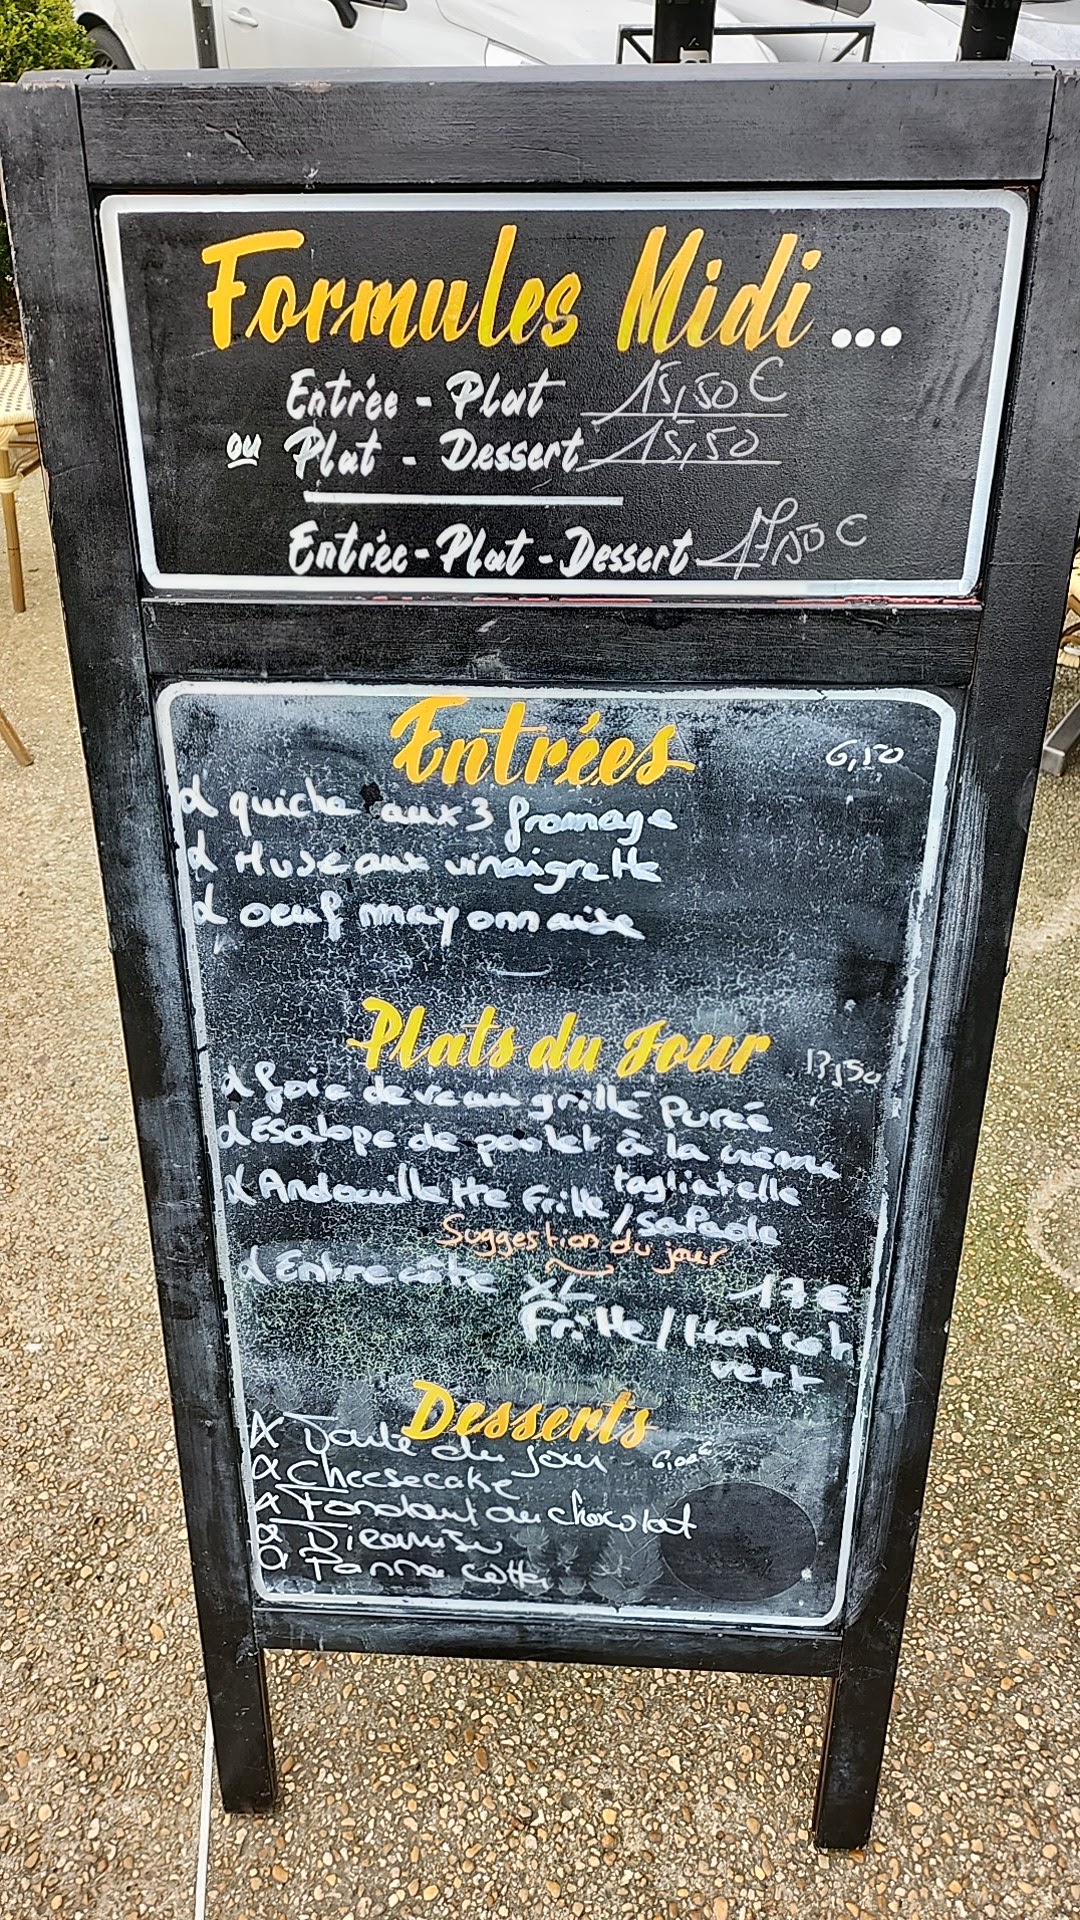 Formules Midi...
Entrée - Plat 15,50 €
ou Plat - Dessert 15,50
Entrée - Plat - Dessert 17,50 €
Entrées 6,50
quiche aux 3 fromage
Museaux vinaigrette
oeuf mayonnaise
Plats du Jour 13,50
foie de veau grillé Purée
Esalope de poulet à la crème
tagliatelle
Andouillette Fritte / Salade
Suggestion du jour
Entrecôte XL 17 €
Fritte / Haricoh
vert
Desserts
Tarte du jour
Cheesecake
Fondant au chocolat
Tiramisu
Panna cotta